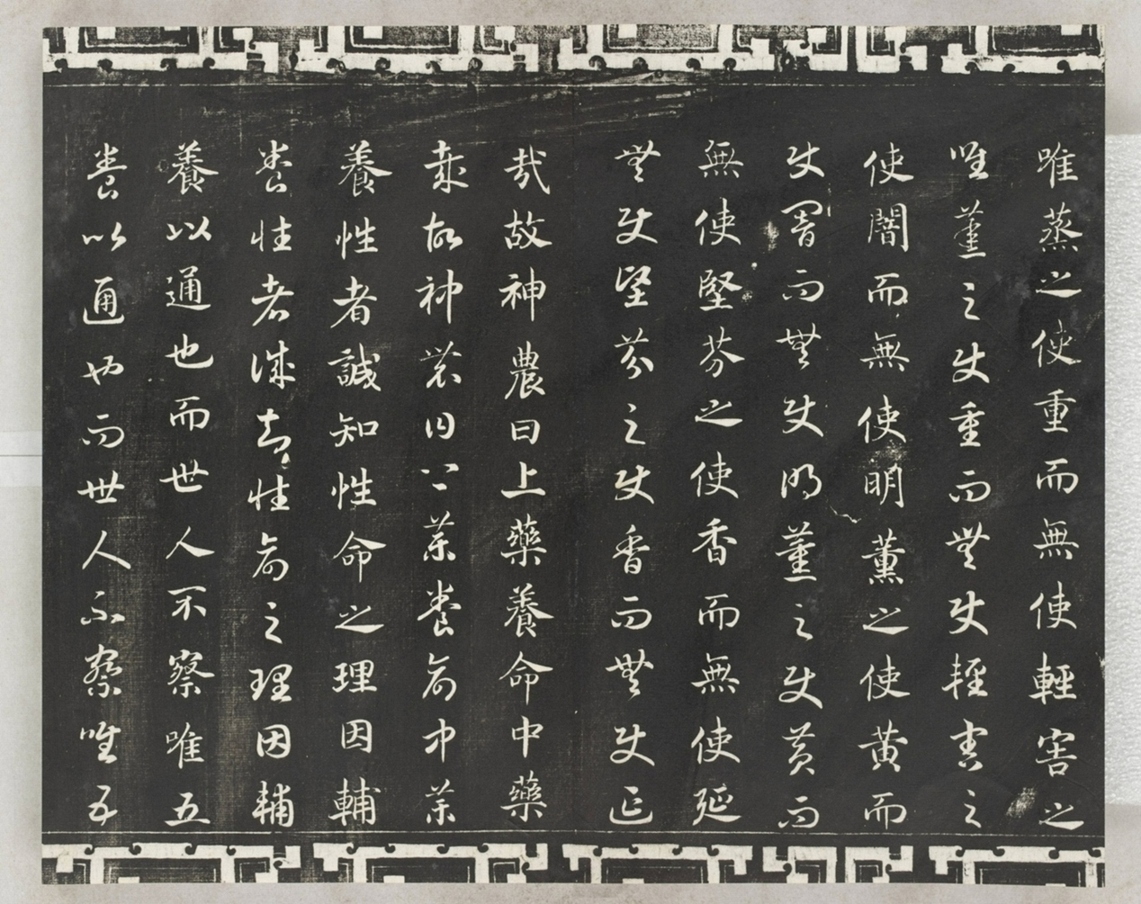 唯蒸之使重而無使輕害之
唯蒸之使重而無使輕害之
使闇而無使明薰之使黃而
使闇而無使明薰之使黃而
無使堅芬之使香而無使延
無使堅芬之使香而無使延
哉故神農曰上藥養命中藥
哉故神農曰上藥養命中藥
養性者誠知性命之理因輔
養性者誠知性命之理因輔
養以通也而世人不察唯五
養以通也而世人不察唯五